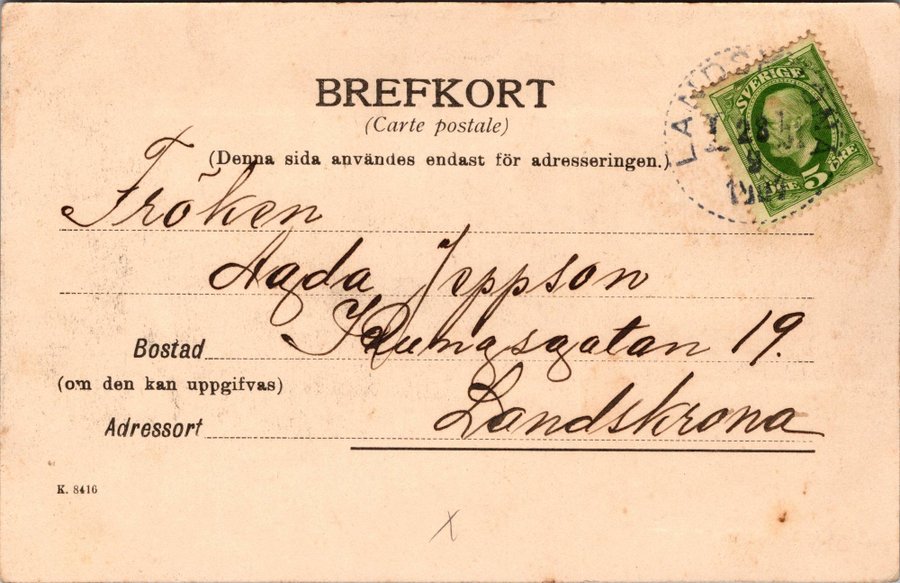 BREFKORT
(Carte postale)
(Denna sida användes endast för adresseringen.)
SVERIGE
5 ÖRE
LANDSKRONA
Fröken
Agda Jeppson
Kungsgatan 19.
Bostad
(om den kan uppgifvas)
Landskrona
Adressort
K. 8416
X